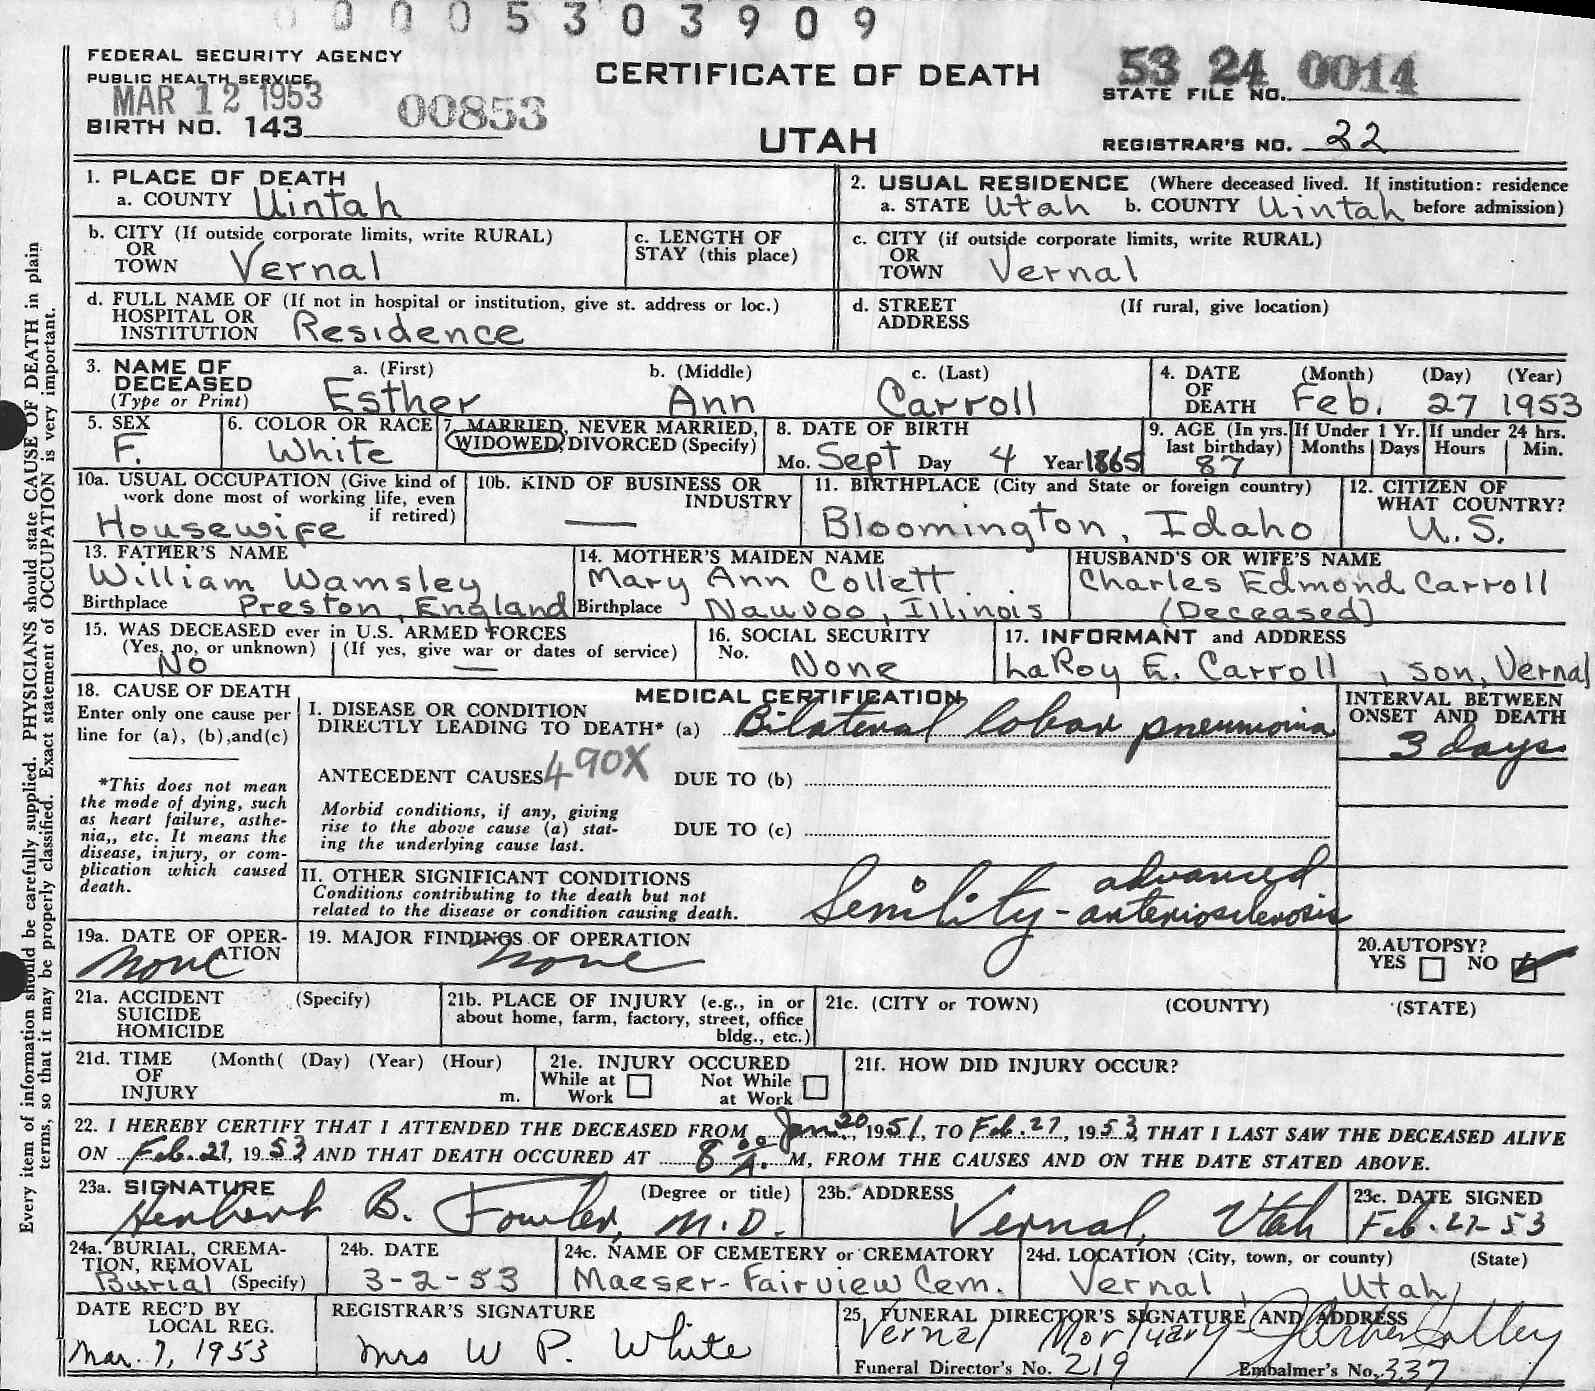 0 0 0 0 5 3 0 3 9 0 9
FEDERAL SECURITY AGENCY
PUBLIC HEALTH SERVICE
MAR 12 1953
00853
BIRTH NO. 143
CERTIFICATE OF DEATH
UTAH
53 24 0014
STATE FILE NO.
REGISTRAR'S NO. 22
Every item of information should be carefully supplied. PHYSICIANS should state CAUSE OF DEATH in plain
terms, so that it may be properly classified. Exact statement of OCCUPATION is very important.
1. PLACE OF DEATH
a. COUNTY Uintah
2. USUAL RESIDENCE (Where deceased lived. If institution: residence
a. STATE Utah b. COUNTY Uintah before admission)
b. CITY (If outside corporate limits, write RURAL)
OR
TOWN Vernal
c. LENGTH OF
STAY (this place)
c. CITY (if outside corporate limits, write RURAL)
OR
TOWN Vernal
d. FULL NAME OF (If not in hospital or institution, give st. address or loc.)
HOSPITAL OR
INSTITUTION Residence
d. STREET (If rural, give location)
ADDRESS
3. NAME OF
DECEASED
(Type or Print)
a. (First) b. (Middle) c. (Last)
Esther Ann Carroll
4. DATE (Month) (Day) (Year)
OF
DEATH Feb. 27 1953
5. SEX
F.
6. COLOR OR RACE
White
7. MARRIED, NEVER MARRIED,
WIDOWED, DIVORCED (Specify)
8. DATE OF BIRTH
Mo. Sept Day 4 Year 1865
9. AGE (In yrs.
last birthday)
87
If Under 1 Yr.
Months Days
If under 24 hrs.
Hours Min.
10a. USUAL OCCUPATION (Give kind of
work done most of working life, even
if retired)
Housewife
10b. KIND OF BUSINESS OR
INDUSTRY
—
11. BIRTHPLACE (City and State or foreign country)
Bloomington, Idaho
12. CITIZEN OF
WHAT COUNTRY?
U.S.
13. FATHER'S NAME
William Wamsley
Birthplace Preston, England
14. MOTHER'S MAIDEN NAME
Mary Ann Collett
Birthplace Nauvoo, Illinois
HUSBAND'S OR WIFE'S NAME
Charles Edmond Carroll
(Deceased)
15. WAS DECEASED ever in U.S. ARMED FORCES
(Yes, no, or unknown) (If yes, give war or dates of service)
No —
16. SOCIAL SECURITY
No.
None
17. INFORMANT and ADDRESS
LaRoy E. Carroll, son, Vernal
18. CAUSE OF DEATH
Enter only one cause per
line for (a), (b),and(c)
*This does not mean
the mode of dying, such
as heart failure, asthe-
nia,, etc. It means the
disease, injury, or com-
plication which caused
death.
MEDICAL CERTIFICATION
I. DISEASE OR CONDITION
DIRECTLY LEADING TO DEATH* (a) Bilateral lobar pneumonia
INTERVAL BETWEEN
ONSET AND DEATH
3 days
ANTECEDENT CAUSES 490X DUE TO (b)
Morbid conditions, if any, giving
rise to the above cause (a) stat-
ing the underlying cause last.
DUE TO (c)
II. OTHER SIGNIFICANT CONDITIONS
Conditions contributing to the death but not
related to the disease or condition causing death.
advanced
Senility - arteriosclerosis
19a. DATE OF OPER-
ATION
none
19. MAJOR FINDINGS OF OPERATION
none
20. AUTOPSY?
YES NO
21a. ACCIDENT (Specify)
SUICIDE
HOMICIDE
21b. PLACE OF INJURY (e.g., in or
about home, farm, factory, street, office
bldg., etc.)
21c. (CITY or TOWN) (COUNTY) (STATE)
21d. TIME (Month( (Day) (Year) (Hour)
OF
INJURY m.
21e. INJURY OCCURED
While at Work Not While at Work
21f. HOW DID INJURY OCCUR?
22. I HEREBY CERTIFY THAT I ATTENDED THE DECEASED FROM Jan. 20, 1951, TO Feb. 27, 1953, THAT I LAST SAW THE DECEASED ALIVE
ON Feb. 27, 1953, AND THAT DEATH OCCURED AT 8:00 A. M, FROM THE CAUSES AND ON THE DATE STATED ABOVE.
23a. SIGNATURE (Degree or title)
Herbert B. Fowler, M.D.
23b. ADDRESS
Vernal, Utah
23c. DATE SIGNED
Feb. 27-53
24a. BURIAL, CREMA-
TION, REMOVAL
Burial (Specify)
24b. DATE
3-2-53
24c. NAME OF CEMETERY or CREMATORY
Maeser-Fairview Cem.
24d. LOCATION (City, town, or county) (State)
Vernal, Utah
DATE REC'D BY
LOCAL REG.
Mar. 7, 1953
REGISTRAR'S SIGNATURE
Mrs W P. White
25. FUNERAL DIRECTOR'S SIGNATURE AND ADDRESS
Vernal Mortuary
Funeral Director's No. 219
Embalmer's No. 337